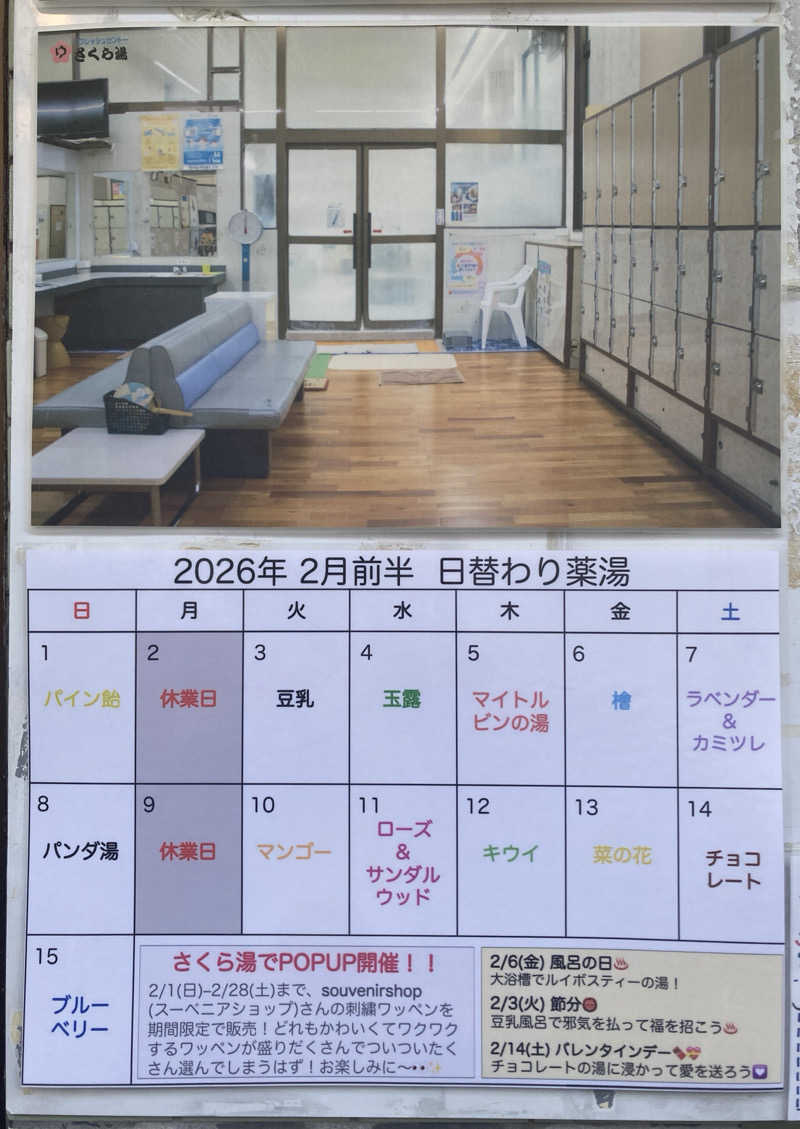 フレッシュセントー
さくら湯
ゆ
2026年 2月前半 日替わり薬湯
日 月 火 水 木 金 土
1 2 3 4 5 6 7
パイン飴
休業日
豆乳
玉露
マイトル
ビンの湯
檜
ラベンダー
&
カミツレ
8 9 10 11 12 13 14
パンダ湯
休業日
マンゴー
ローズ
&
サンダル
ウッド
キウイ
菜の花
チョコ
レート
15
ブルー
ベリー
さくら湯でPOPUP開催！！
2/1(日)–2/28(土)まで、souvenirshop
(スーベニアショップ)さんの刺繍ワッペンを
期間限定で販売！どれもかわいくてワクワク
するワッペンが盛りだくさんでついついたく
さん選んでしまうはず！お楽しみに〜👀✨
2/6(金) 風呂の日♨
大浴槽でルイボスティーの湯！
2/3(火) 節分👹
豆乳風呂で邪気を払って福を招こう♨
2/14(土) バレンタインデー🍫💝
チョコレートの湯に浸かって愛を送ろう💟